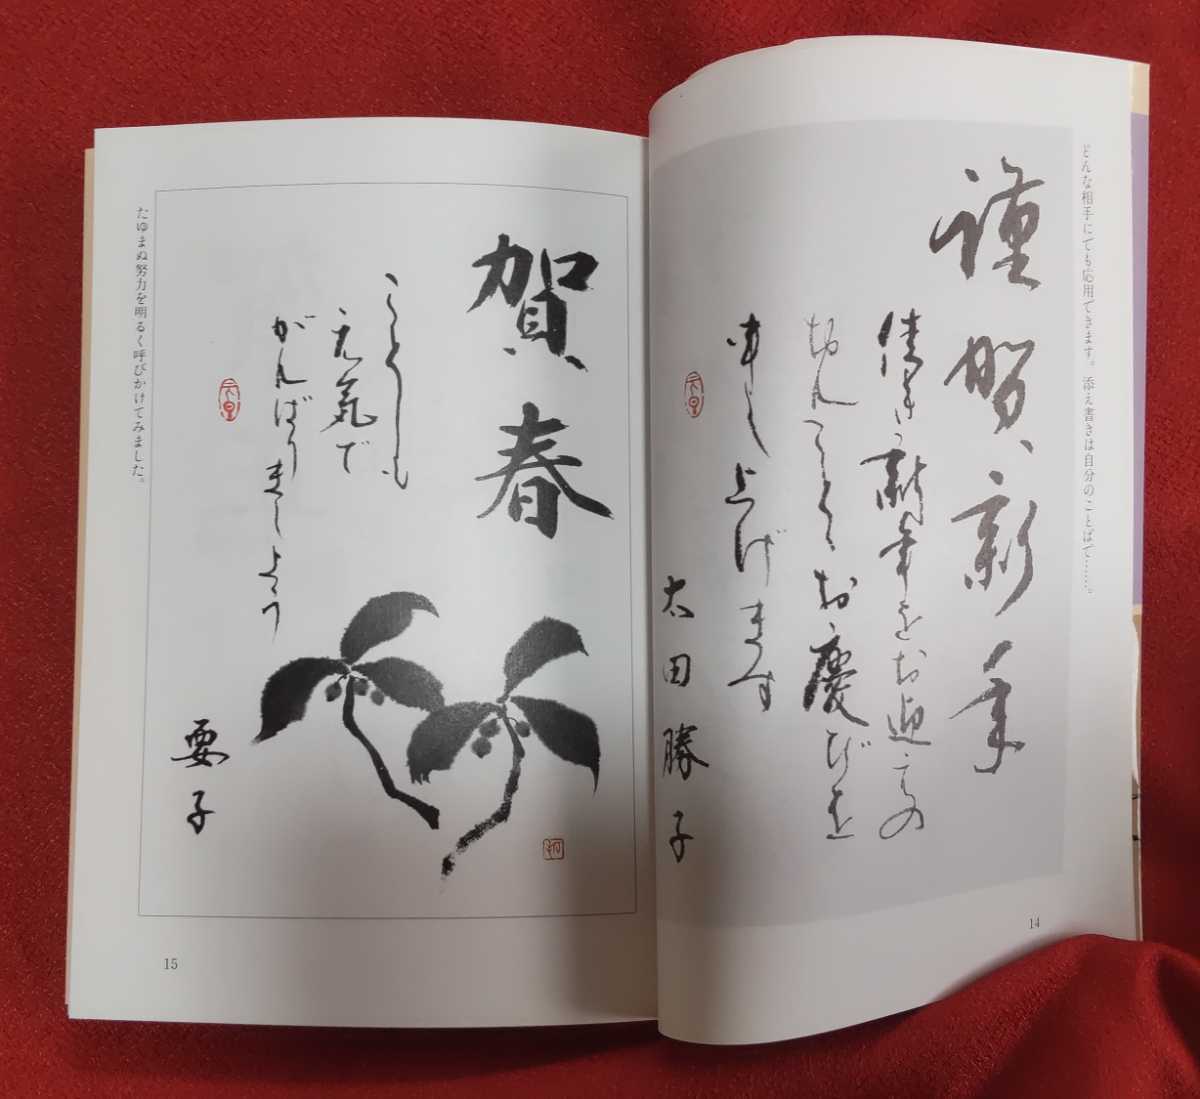 どんな相手にでも応用できます。添え書きは自分のことばで……。
謹賀新年
佳き新年をお迎えの
おんことと お慶びを
申し上げます
太田勝子
14
賀春
ことしも
元気で
がんばりましょう
要子
たゆまぬ努力を明るく呼びかけてみました。
15